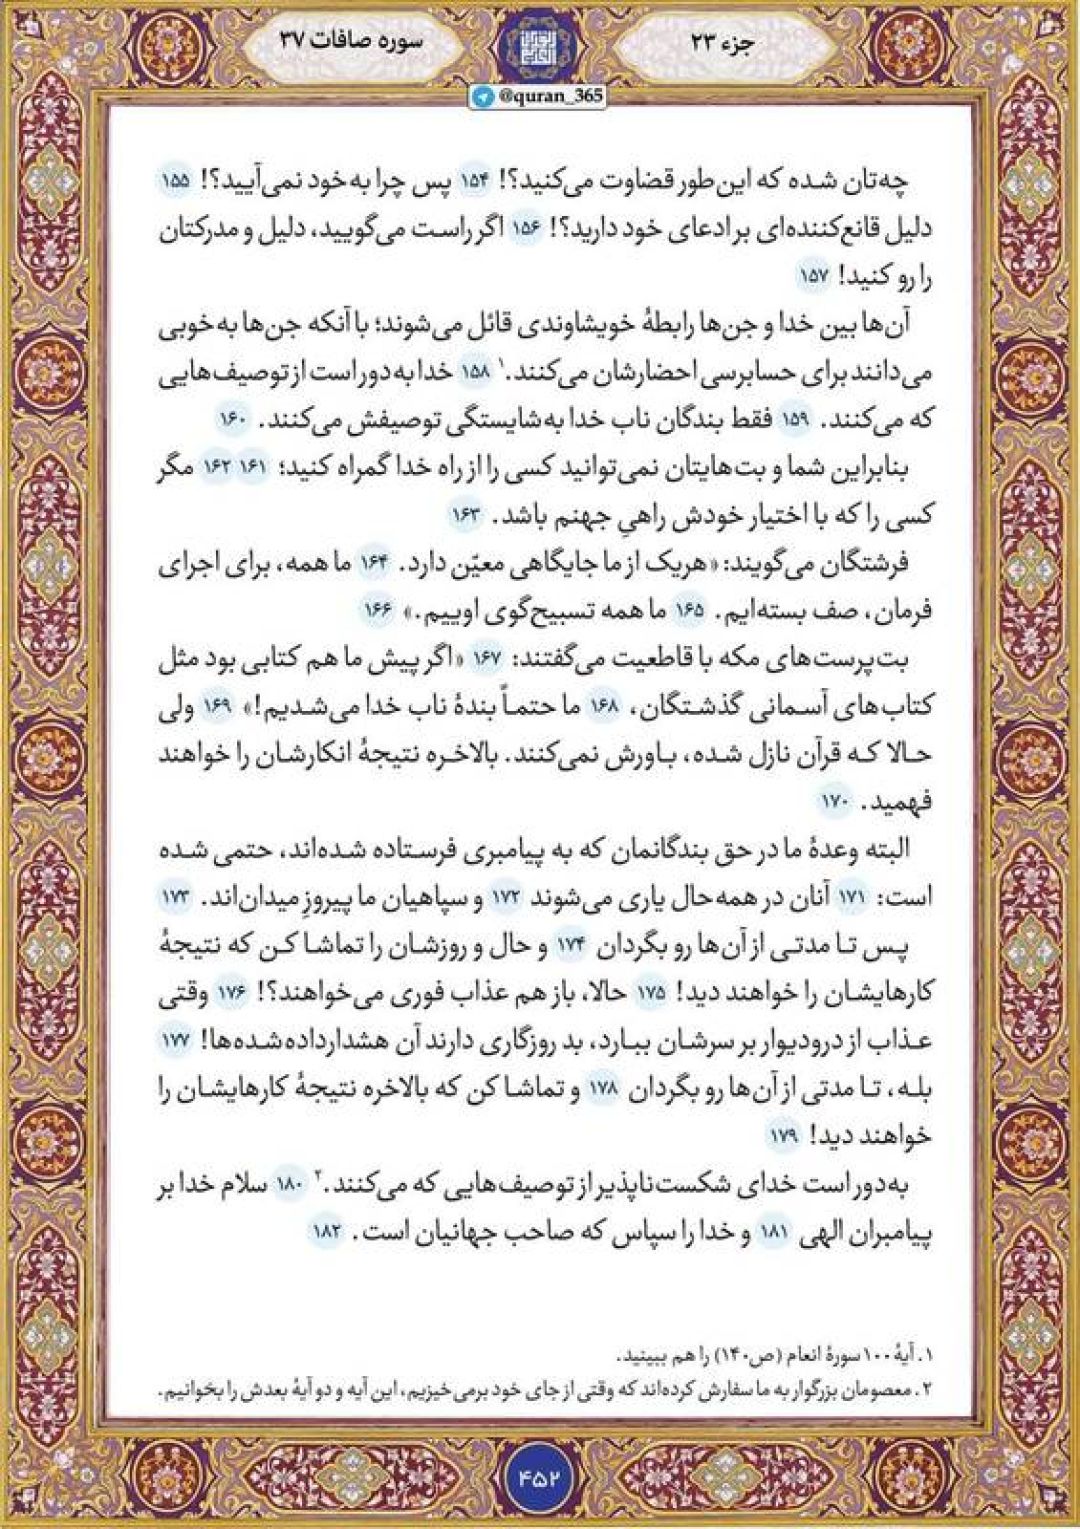 جزء ۲۳
سوره صافات ۳۷
@quran_365
چه‌تان شده که این‌طور قضاوت می‌کنید؟! ۱۵۴ پس چرا به خود نمی‌آیید؟! ۱۵۵
دلیل قانع‌کننده‌ای بر ادعای خود دارید؟! ۱۵۶ اگر راست می‌گویید، دلیل و مدرکتان
را رو کنید! ۱۵۷
آن‌ها بین خدا و جن‌ها رابطهٔ خویشاوندی قائل می‌شوند؛ با آنکه جن‌ها به خوبی
می‌دانند برای حسابرسی احضارشان می‌کنند.۱ ۱۵۸ خدا به‌دور است از توصیف‌هایی
که می‌کنند. ۱۵۹ فقط بندگان ناب خدا به‌شایستگی توصیفش می‌کنند. ۱۶۰
بنابراین شما و بت‌هایتان نمی‌توانید کسی را از راه خدا گمراه کنید؛ ۱۶۱ ۱۶۲ مگر
کسی را که با اختیار خودش راهیِ جهنم باشد. ۱۶۳
فرشتگان می‌گویند: «هریک از ما جایگاهی معیّن دارد. ۱۶۴ ما همه، برای اجرای
فرمان، صف بسته‌ایم. ۱۶۵ ما همه تسبیح‌گوی اوییم.» ۱۶۶
بت‌پرست‌های مکه با قاطعیت می‌گفتند: ۱۶۷ «اگر پیش ما هم کتابی بود مثل
کتاب‌های آسمانی گذشتگان، ۱۶۸ ما حتماً بندهٔ ناب خدا می‌شدیم!» ۱۶۹ ولی
حالا که قرآن نازل شده، باورش نمی‌کنند. بالاخره نتیجهٔ انکارشان را خواهند
فهمید. ۱۷۰
البته وعدهٔ ما در حق بندگانمان که به پیامبری فرستاده شده‌اند، حتمی شده
است: ۱۷۱ آنان در همه‌حال یاری می‌شوند ۱۷۲ و سپاهیان ما پیروزِ میدان‌اند. ۱۷۳
پس تا مدتی از آن‌ها رو بگردان ۱۷۴ و حال و روزشان را تماشا کن که نتیجهٔ
کارهایشان را خواهند دید! ۱۷۵ حالا، باز هم عذاب فوری می‌خواهند؟! ۱۷۶ وقتی
عذاب از درودیوار بر سرشان ببارد، بد روزگاری دارند آن هشدارداده‌شده‌ها! ۱۷۷
بله، تا مدتی از آن‌ها رو بگردان ۱۷۸ و تماشا کن که بالاخره نتیجهٔ کارهایشان را
خواهند دید! ۱۷۹
به‌دور است خدای شکست‌ناپذیر از توصیف‌هایی که می‌کنند.۲ ۱۸۰ سلام خدا بر
پیامبران الهی ۱۸۱ و خدا را سپاس که صاحب جهانیان است. ۱۸۲
۱. آیهٔ ۱۰۰ سورهٔ انعام (ص۱۴۰) را هم ببینید.
۲. معصومان بزرگوار به ما سفارش کرده‌اند که وقتی از جای خود برمی‌خیزیم، این آیه و دو آیهٔ بعدش را بخوانیم.
۴۵۲